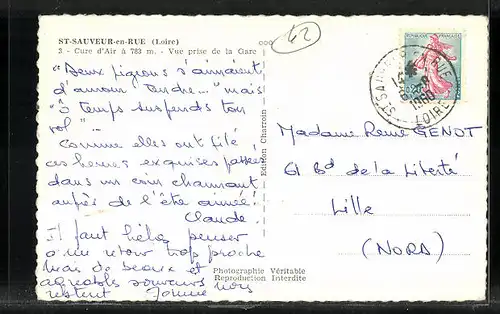 ST-SAUVEUR-en-RUE (Loire)
3 - Cure d'Air à 783 m. - Vue prise de la Gare
42
"Deux pigeons s'aimaient
d'amour tendre..." mais
"ô temps suspends ton
vol"...
Comme elles ont filé
ces heures exquises passées
dans un coin charmant
auprès de l'être aimé!
Claude
Il faut hélas penser
à un retour trop proche
Mais de beaux et
agréables souvenirs nous
restent
Edition Charroin
Photographie Véritable
Reproduction Interdite
ST SAUVEUR-EN-RUE
1960
LOIRE
Madame René GENOT
61 Bd de la Liberté
Lille
(NORD)